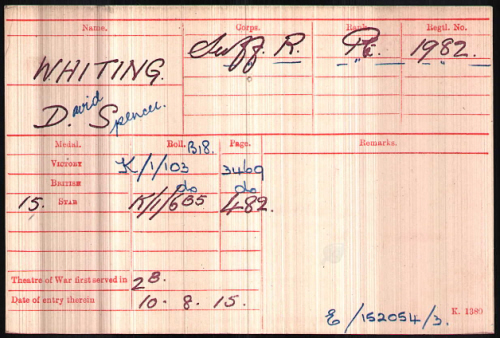 Name. Corps. Rank. Regtl. No.
WHITING. Suff. R. Pte. 1982.
David Spencer.
Medal. Roll. Page. Remarks.
B18.
VICTORY K/1/103 3469
BRITISH do do
15. STAR K/1/635 482.
Theatre of War first served in 2B.
Date of entry therein 10. 8. 15.
E/152054/3. K. 1380